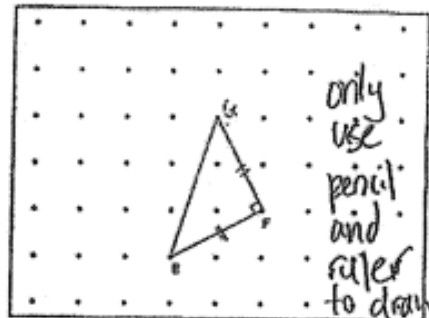 G
only
use
pencil
and
F
E
ruler
to draw